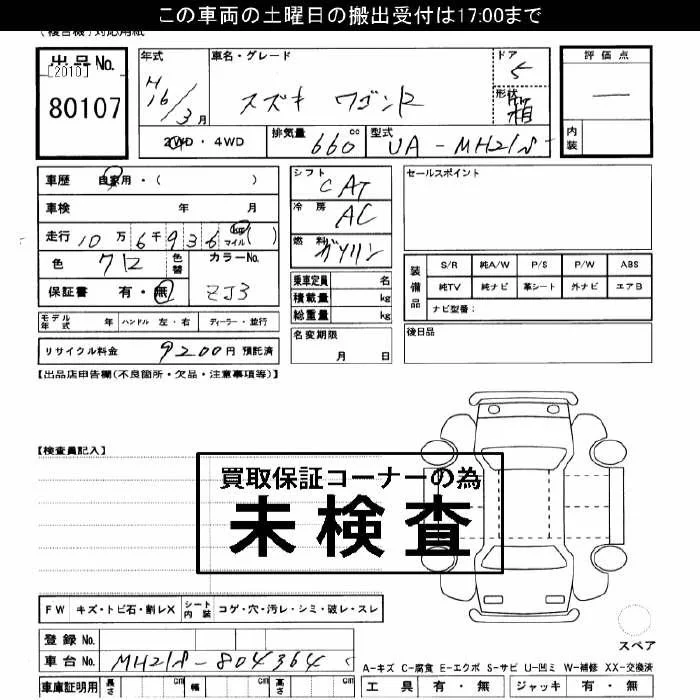 この車両の土曜日の搬出受付は17:00まで
(複合機)対応用紙
出品No.
[2010]
80107
年式
H16/3月
車名・グレード
スズキ ワゴンR
ドア
5
形状
箱
評価点
—
内装
2WD・4WD
排気量 660cc
型式 UA-MH21S
車歴 自家用・( )
車検 年 月
走行 10万6千936 km マイル ( )
色 クロ 色替
カラーNo. ZJ3
保証書 有・無
モデル年式 年 ハンドル 左・右 ディーラー・並行
リサイクル料金 9200円 預託済
シフト CAT
冷房 AC
燃料 ガソリン
乗車定員 名
積載量 kg
総重量 kg
名変期限
月 日
セールスポイント
装備品
S/R 純A/W P/S P/W ABS
純TV 純ナビ 革シート 外ナビ エアB
ナビ型番：
後日品
【出品店申告欄(不良箇所・欠品・注意事項等)】
【検査員記入】
買取保証コーナーの為
未検査
FW キズ・トビ石・割レX シート内装 コゲ・穴・汚レ・シミ・破レ・スレ
スペア
登録No.
車台No. MH21S-804364
車庫証明用 長さ cm 幅 cm 高さ cm
A-キズ C-腐食 E-エクボ S-サビ U-凹ミ W-補修 XX-交換済
工具 有・無 ジャッキ 有・無